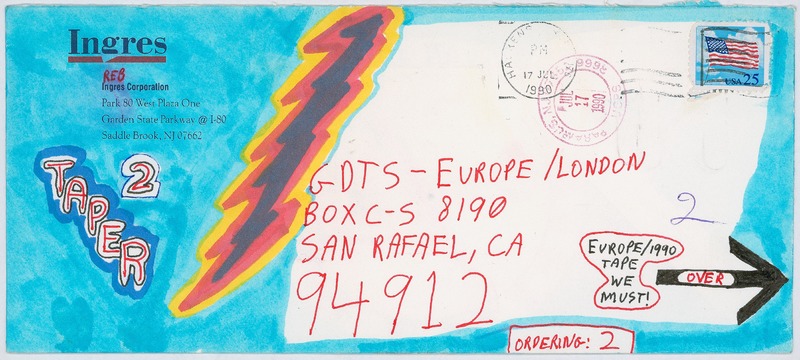 Ingres
REB
Ingres Corporation
Park 80 West Plaza One
Garden State Parkway @ I-80
Saddle Brook, NJ 07662
TAPER
2
PM
17 JUL
1990
JUL
17
1990
PARAMUS, NJ
USA 25
GDTS - EUROPE / LONDON
BOX C-S 8190
SAN RAFAEL, CA
94912
2
EUROPE/1990
TAPE
WE
MUST!
OVER
ORDERING: 2